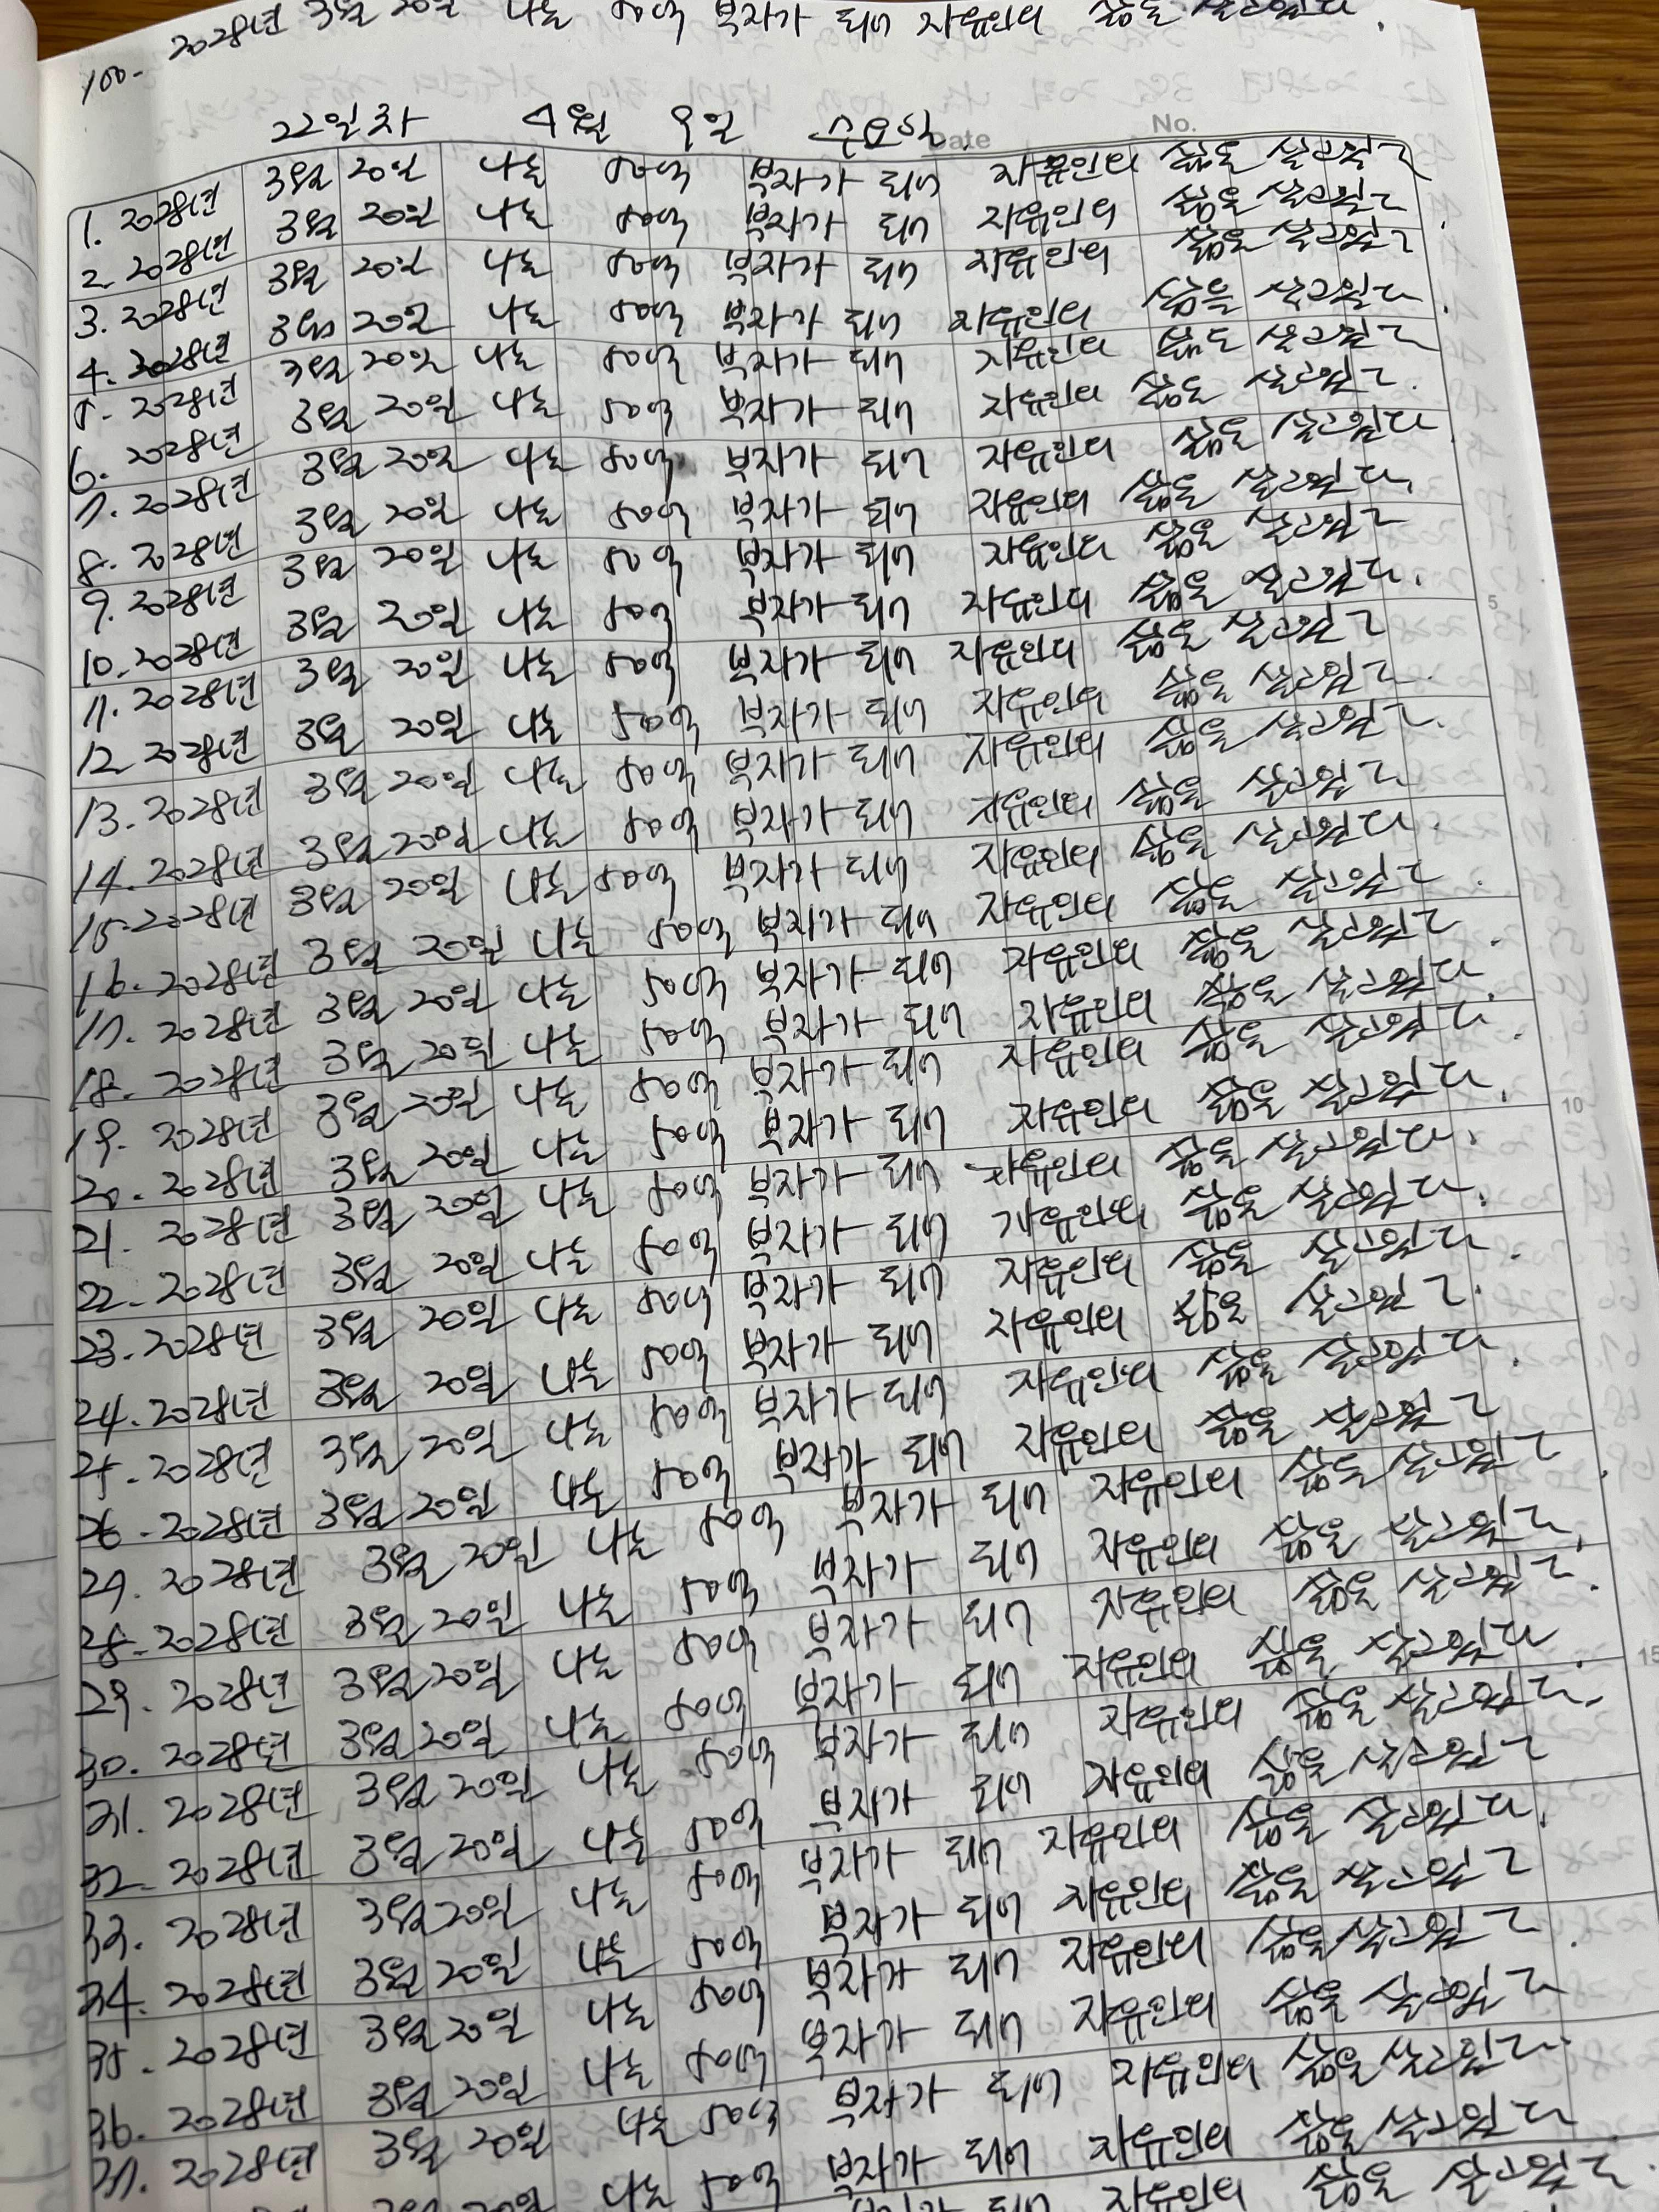 100. 2028년 3월 20일 나는 50억 부자가 되어 자유인의 삶을 살고있다.
22일차 4월 9일 수요일
Date No.
1. 2028년 3월 20일 나는 50억 부자가 되어 자유인의 삶을 살고있다
2. 2028년 3월 20일 나는 50억 부자가 되어 자유인의 삶을 살고있다.
3. 2028년 3월 20일 나는 50억 부자가 되어 자유인의 삶을 살고있다
4. 2028년 3월 20일 나는 50억 부자가 되어 자유인의 삶을 살고있다.
5. 2028년 3월 20일 나는 50억 부자가 되어 자유인의 삶을 살고있다
6. 2028년 3월 20일 나는 50억 부자가 되어 자유인의 삶을 살고있다.
7. 2028년 3월 20일 나는 50억 부자가 되어 자유인의 삶을 살고있다
8. 2028년 3월 20일 나는 50억 부자가 되어 자유인의 삶을 살고있다.
9. 2028년 3월 20일 나는 50억 부자가 되어 자유인의 삶을 살고있다
10. 2028년 3월 20일 나는 50억 부자가 되어 자유인의 삶을 살고있다.
5
11. 2028년 3월 20일 나는 50억 부자가 되어 자유인의 삶을 살고있다
12. 2028년 3월 20일 나는 50억 부자가 되어 자유인의 삶을 살고있다.
13. 2028년 3월 20일 나는 50억 부자가 되어 자유인의 삶을 살고있다.
14. 2028년 3월 20일 나는 50억 부자가 되어 자유인의 삶을 살고있다
15. 2028년 3월 20일 나는 50억 부자가 되어 자유인의 삶을 살고있다.
16. 2028년 3월 20일 나는 50억 부자가 되어 자유인의 삶을 살고있다
17. 2028년 3월 20일 나는 50억 부자가 되어 자유인의 삶을 살고있다.
18. 2028년 3월 20일 나는 50억 부자가 되어 자유인의 삶을 살고있다.
19. 2028년 3월 20일 나는 50억 부자가 되어 자유인의 삶을 살고있다.
20. 2028년 3월 20일 나는 50억 부자가 되어 자유인의 삶을 살고있다.
10
21. 2028년 3월 20일 나는 50억 부자가 되어 자유인의 삶을 살고있다.
22. 2028년 3월 20일 나는 50억 부자가 되어 자유인의 삶을 살고있다.
23. 2028년 3월 20일 나는 50억 부자가 되어 자유인의 삶을 살고있다.
24. 2028년 3월 20일 나는 50억 부자가 되어 자유인의 삶을 살고있다.
25. 2028년 3월 20일 나는 50억 부자가 되어 자유인의 삶을 살고있다.
26. 2028년 3월 20일 나는 50억 부자가 되어 자유인의 삶을 살고있다
27. 2028년 3월 20일 나는 50억 부자가 되어 자유인의 삶을 살고있다.
28. 2028년 3월 20일 나는 50억 부자가 되어 자유인의 삶을 살고있다.
29. 2028년 3월 20일 나는 50억 부자가 되어 자유인의 삶을 살고있다.
30. 2028년 3월 20일 나는 50억 부자가 되어 자유인의 삶을 살고있다.
15
31. 2028년 3월 20일 나는 50억 부자가 되어 자유인의 삶을 살고있다.
32. 2028년 3월 20일 나는 50억 부자가 되어 자유인의 삶을 살고있다
33. 2028년 3월 20일 나는 50억 부자가 되어 자유인의 삶을 살고있다.
34. 2028년 3월 20일 나는 50억 부자가 되어 자유인의 삶을 살고있다
35. 2028년 3월 20일 나는 50억 부자가 되어 자유인의 삶을 살고있다.
36. 2028년 3월 20일 나는 50억 부자가 되어 자유인의 삶을 살고있다
37. 2028년 3월 20일 나는 50억 부자가 되어 자유인의 삶을 살고있다.
3월 20일 나는 50억 부자가 되어 자유인의 삶을 살고있다
자유인의 삶을 살고있다.